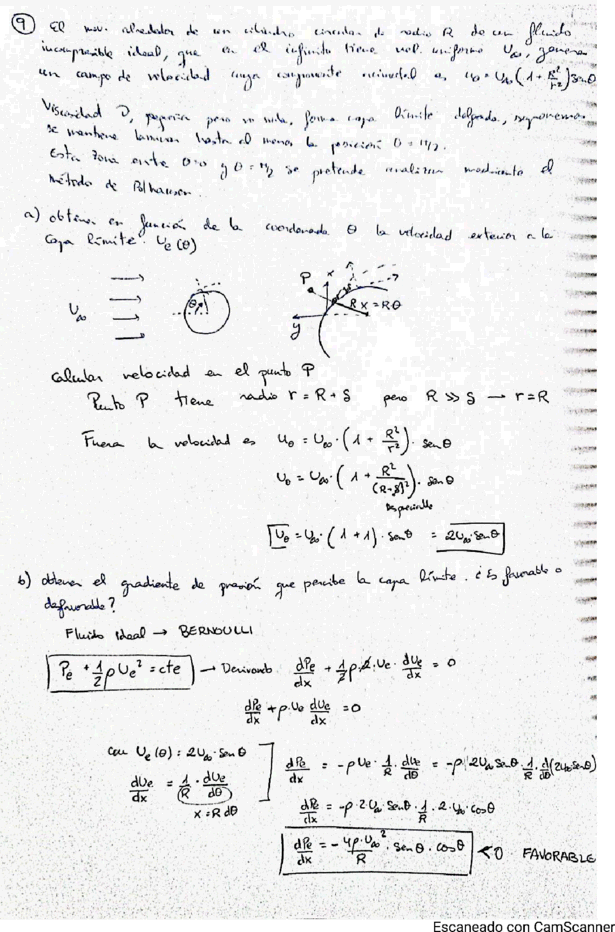 9 El mov. alrededor de un cilindro circular de radio R de un fluido
incompresible ideal, que en el infinito tiene vel. uniforme U∞, genera
un campo de velocidad cuya componente azimutal es u_θ = U∞(1 + R²/r²) senθ
Viscosidad ν, pequeña pero no nula, forma capa límite delgada, suponemos
se mantiene laminar hasta al menos la posición θ = π/2.
Esta zona entre θ=0 y θ = π/2 se pretende analizar mediante el
método de Polhausen.
a) obtener en función de la coordenada θ la velocidad exterior a la
capa límite. Ue(θ)
U∞
θ
P
x
R
x = Rθ
y
Calcular velocidad en el punto P
Punto P tiene radio r = R + δ pero R >> δ → r = R
Fuera la velocidad es u_θ = U∞·(1 + R²/r²)·senθ
U_θ = U∞·(1 + R²/(R-δ)²)·senθ
Despreciable
U_θ = U∞·(1 + 1)·senθ = 2U∞·senθ
b) obtener el gradiente de presión que percibe la capa límite. ¿Es favorable o
desfavorable?
Fluido ideal → BERNOULLI
Pe + 1/2 ρ Ue² = cte → Derivando dPe/dx + 1/2 ρ·2·Ue·dUe/dx = 0
dPe/dx + ρ·Ue dUe/dx = 0
con Ue(θ) = 2U∞·senθ
dUe/dx = 1/R · dUe/dθ
x = R dθ
dPe/dx = -ρUe·1/R·dUe/dθ = -ρ·2U∞ senθ·1/R·d/dθ(2U∞senθ)
dPe/dx = -ρ·2·U∞·senθ·1/R·2·U∞·cosθ
dPe/dx = -4ρ·U∞²/R · senθ·cosθ < 0 FAVORABLE
Escaneado con CamScanner